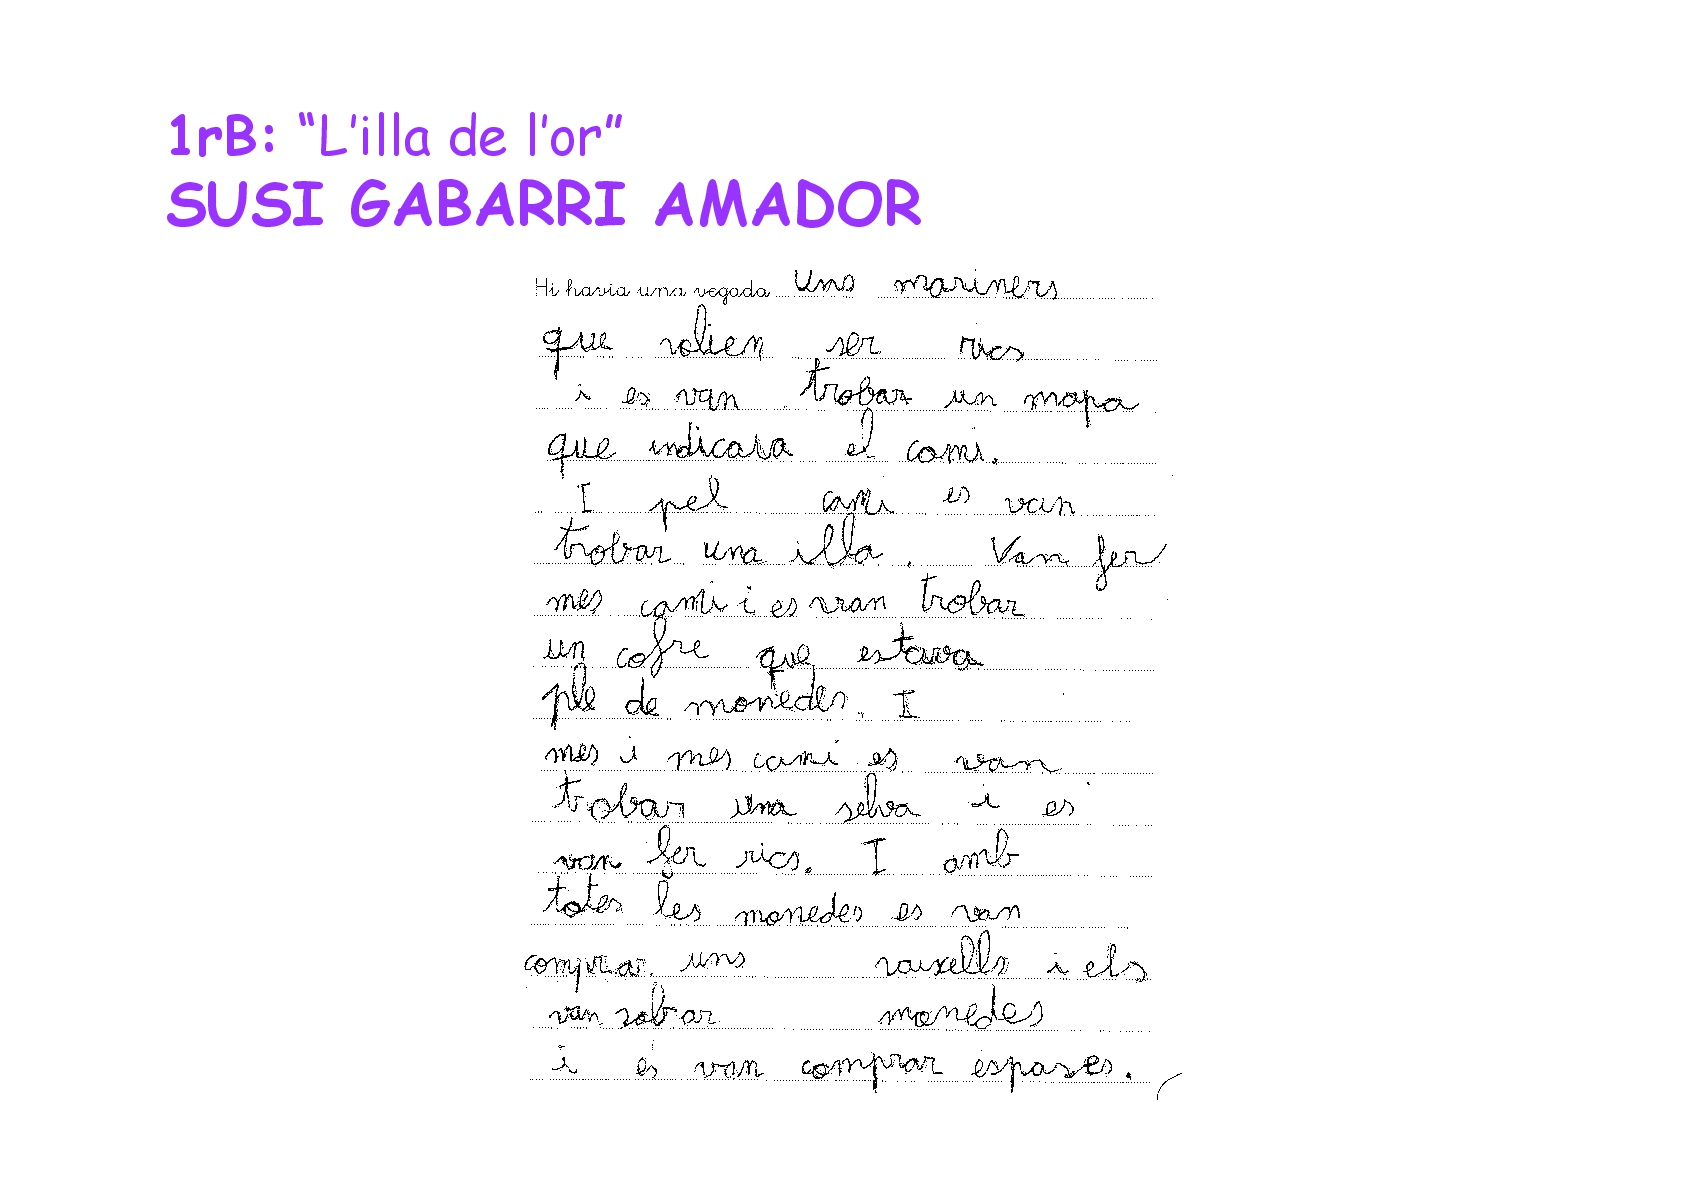 1rB: “L’illa de l’or”
SUSI GABARRI AMADOR
Hi havia una vegada uns mariners
que volien ser rics
i es van trobar un mapa
que indicava el cami.
I pel cami es van
trobar una illa. Van fer
mes cami i es vran trobar
un cofre que estava
ple de monedes. I
mes i mes cami es van
trobar una selva i es
van fer rics. I amb
totes les monedes es van
comprar uns vaixells i els
van sobrar monedes
i es van comprar espases.